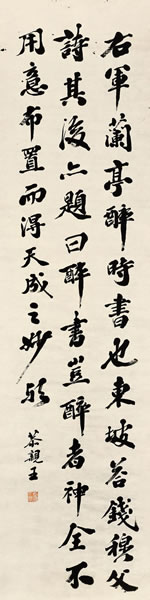 右軍蘭亭醉時書也東坡答錢穆父
詩其後亦題曰醉書豈醉者神全不
用意布置而得天成之妙歟
恭親王